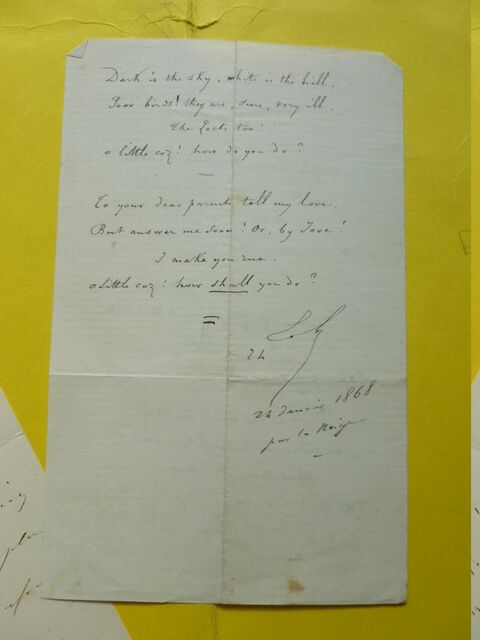 Dark is the sky, white is the hill.
Poor birds! they are, sure, very ill.
The Poets too:
o little coz! how do you do?
To your dear parents tell my love.
But answer me soon! Or, by Jove!
I make you rue.
o little coz! how shall you do?
24
24 Janvier 1868
par la Neige